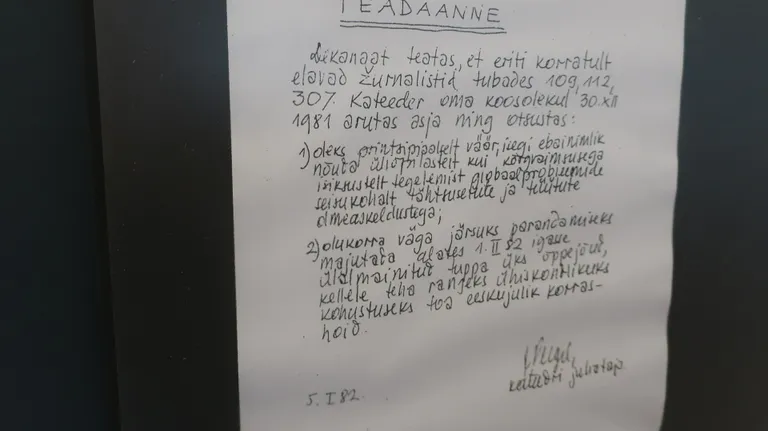 TEADAANNE
Dekanaat teatas, et eriti korratult
elavad žurnalistid tubades 109, 112,
307. Kateeder oma koosolekul 30.XII
1981 arutas asja ning otsustas:
1) oleks printsipiaalselt väär, isegi ebainimlik
nõuda üliõpilastelt kui kõrgvaimsusega
isiksustelt tegelemist globaalprobleemide
seisukohalt tähtsusetute ja tüütute
olmeaskeldustega;
2) olukorra väga järsuks parandamiseks
majutada alates 1.II 82 igasse
ülalmainitud tuppa üks õppejõud,
kellele teha rangeks ühiskondlikuks
kohustuseks toa eeskujulik korras-
hoid.
kateedri juhataja
5.I 82.